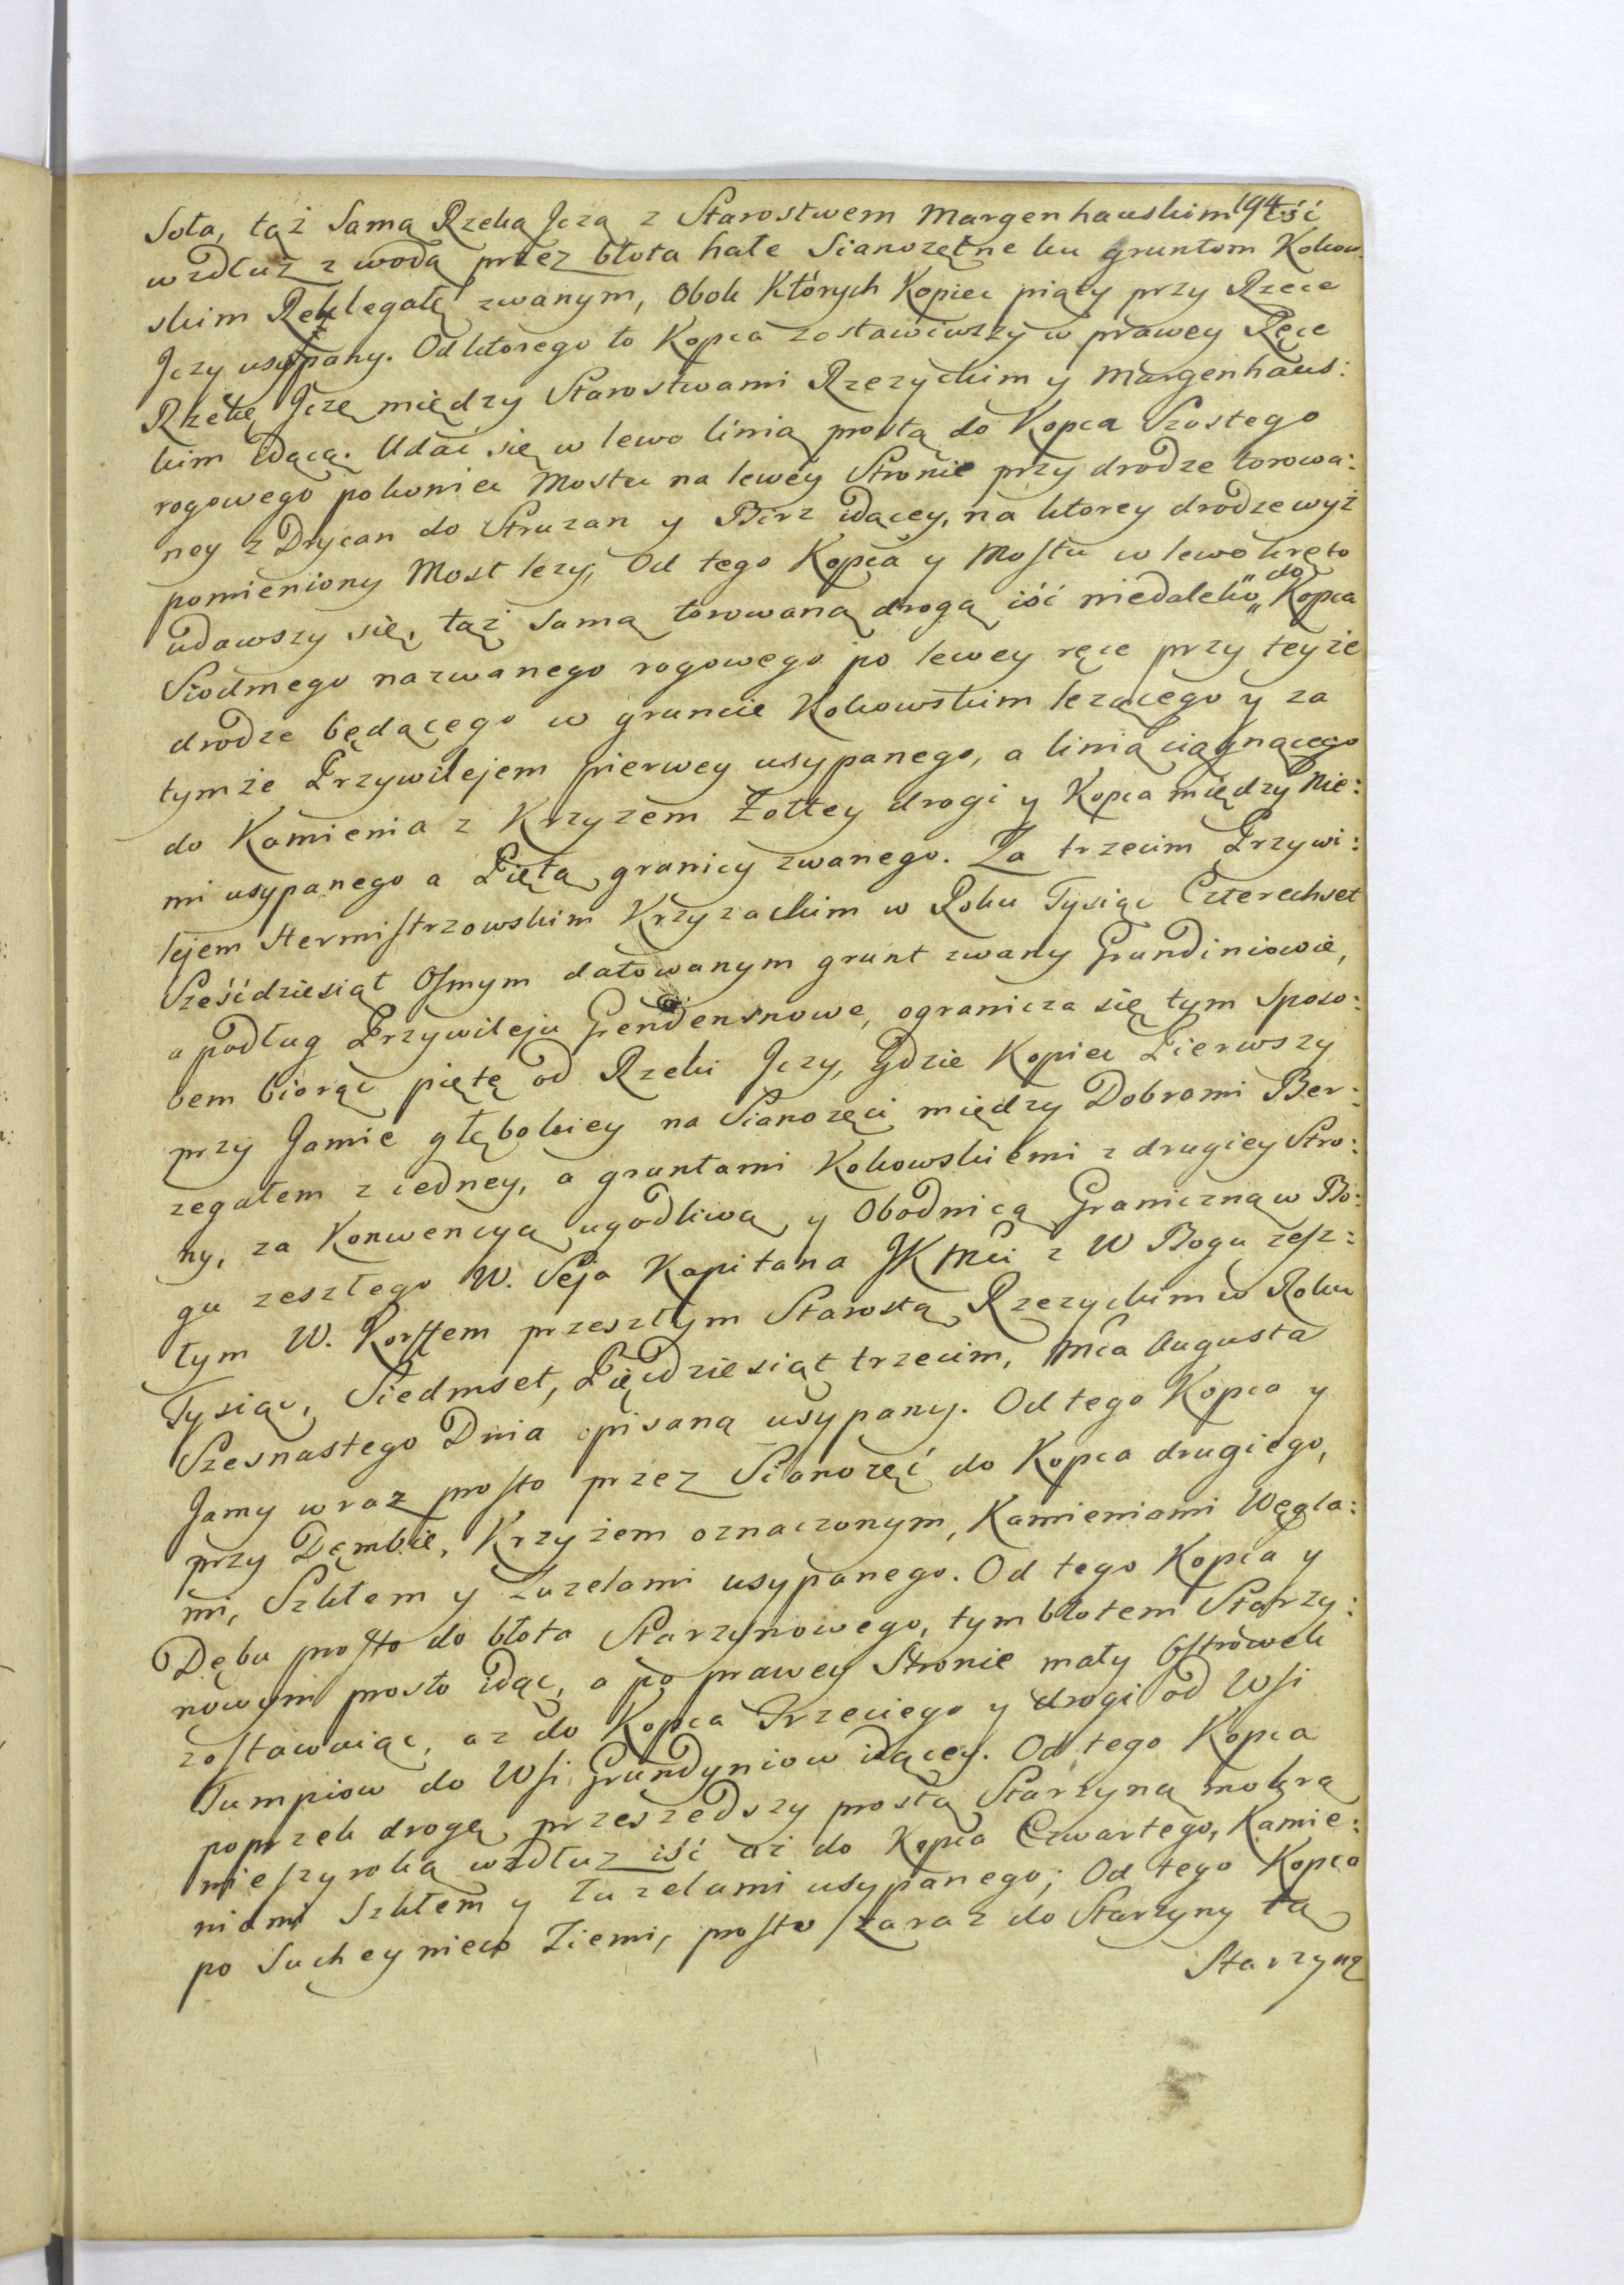 194
Soła, tąż Samą Rzeką Jczą z Starostwem Margenhauskim iść
wzdłuż z wodą przez błota hałe Sianozętne ku gruntom Kokow-
skim Reklegałę zwanym, Obok Których Kopiec piąty przy Rzece
Jczy usypany. Od ktorego to Kopca zostawiwszy w prawey Ręce
Rzekę Jczę między Starostwami Rzezyckim y Margenhaus:
kim idącą. Udać się w lewo linią prostą do Kopca Szostego
rogowego pokoniec Mostu na lewey Stronie przy drodze torowa:
ney z Drycan do Struzan y Birz idącey, na ktorey drodze wyż
pomieniony Most lezy, Od tego Kopca y Mostu w lewo kręto
udawszy się, tąż samą torowaną drogą iść niedaleko „do„ Kopca
Siodmego nazwanego rogowego po lewey ręce przy teyże
drodze będącego w gruncie Kokowskim lezącego y za
tymże Przywilejem pierwey usypanego, a linią ciągnącego
do Kamienia z Krzyzem Żołtey drogi y Kopca między Nie:
mi usypanego a Piętą granicy zwanego. Za trzecim Przywi:
lejem Hermistrzowskim Krzyzackim w Roku Tysiąc Czterechset
Sześćdziesiąt Osmym datowanym grunt zwany Grundiniowie,
a podług Przywileju Grendensnowe, ogranicza się tym sposo:
bem biorąc piętę od Rzeki Jczy, gdzie Kopiec Pierwszy
przy Jamie głębokiey na Sianozęci między Dobrami Ber:
zegałem z iedney, a gruntami Kokowskiemi z drugiey Stro:
ny, za Konwencyą ugodliwą y Obodnicą Graniczną w Bo:
gu zeszłego W. Seja Kapitana JKMci z W Bogu zesz:
łym W. Korffem przeszłym Starostą Rzezyckim w Roku
Tysiąc, Siedmset, Pięćdziesiąt trzecim, Mca Augusta
Szesnastego Dnia opisaną usypany. Od tego Kopca y
Jamy wraz prosto przez Sianozęć do Kopca drugiego,
przy Dąmbie, Krzyżem oznaczonym, Kamieniami Węgla:
mi, Szkłem y Zuzelami usypanego. Od tego Kopca y
Dębu prosto do błota Starzynowego, tym błotem Starzy:
nowym prosto idąc, a po prawey Stronie mały Ostrówek
zostawuiąc, az do Kopca Trzeciego y drogi od Wsi
Tumpiow do Wsi Grundyniow idącey. Od tego Kopca
poprzek drogę przeszedszy prostą Starzyną mokrą
nieszyroką wzdłuz iść aż do Kopca Czwartego, Kamie:
niami Szkłem y Zuzelami usypanego; Od tego Kopca
po Suchey nieco Ziemi, prosto zaraz do Starzyny tą
Starzyną